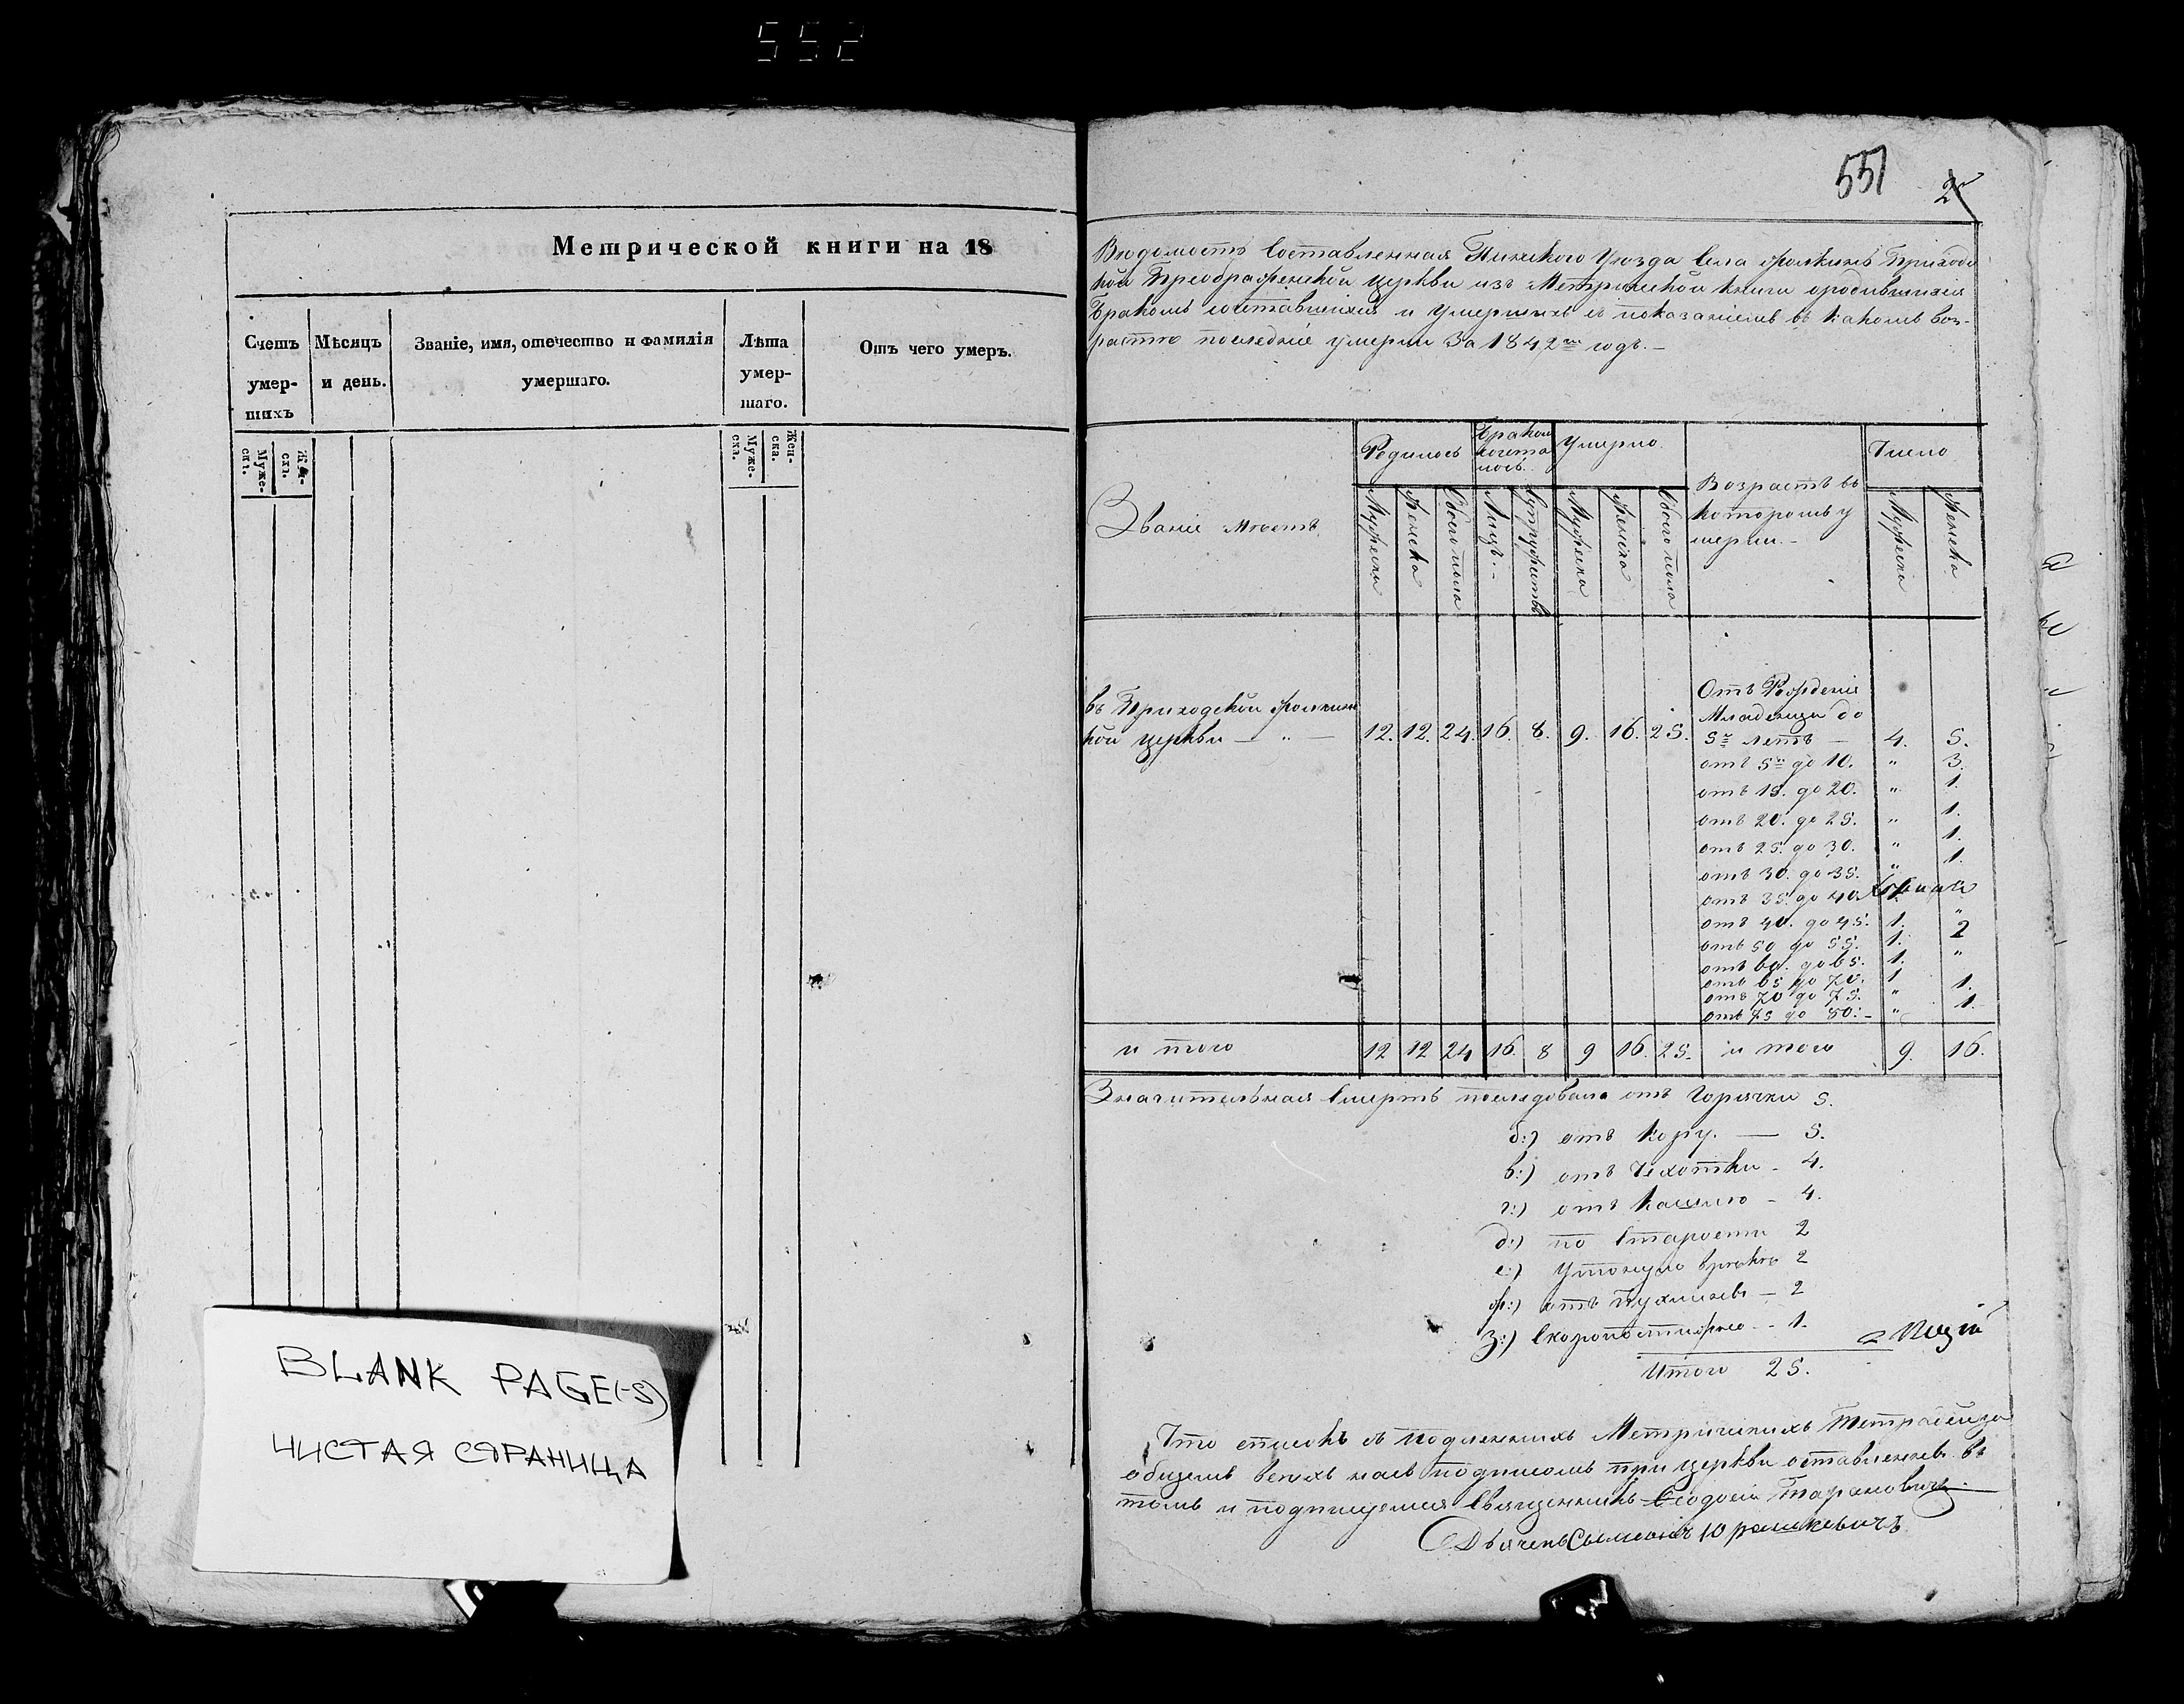 552
Метрической книги на 18
Счетъ умер- шихъ
Мѣсяцъ и день.
Званіе, имя, отечество и фамилія умершаго.
Лѣта умер- шаго.
Отъ чего умер.
Муже- скъ.
Жен- скъ.
Муже- ска.
Жен- ска.
BLANK PAGE(-S)
ЧИСТАЯ СТРАНИЦА
551 2
Вѣдомость Составленная Пинского Уѣзда Села Приход
кой Преображенской Церкви изъ Метрической книги о родившихся
Бракомъ сочетавшихся и Умершихъ съ показаніемъ въ какомъ воз-
растѣ последніе умерли за 1842й годъ. —
Званіе мѣстъ
Родилось
Бракомъ сочета лось.
Умерло.
Возрастъ въ которомъ у мерли. -
Число
Мужеска Женска Обоего пола Лицъ. - Супружествъ Мужеска Женска Обоего пола Мужеска Женска
въ Приходской
кой Церкви — „ — 12. 12. 24. 16. 8. 9. 16. 25.
Отъ Рожденія
Младенцы до
5ти летъ — 4. 5.
отъ 5ти до 10. „ 3.
отъ 15. до 20. „ 1.
отъ 20. до 25. „ 1.
отъ 25. до 30. „ 1.
отъ 30. до 35. „ 1.
отъ 35. до 40.
отъ 40. до 45. 1. „
отъ 50 до 55. 1. 2
отъ 60. до 65. 1. „
отъ 65 до 70. 1
отъ 70 до 75. „ 1.
отъ 75 до 80. - „ 1.
и того 12 12 24 16. 8 9 16. 25. и того 9. 16.
Значительная Смерть последовала отъ Горячки 5.
б:) отъ Кору. — 5.
в:) отъ Чехотки - 4.
г:) отъ Кашлю - 4.
д:) по Старости 2
е:) Утонуло врѣкѣ 2
ж:) отъ Пухлинъ — 2
з:) Скоропостижно - - 1.
Итого 25.
Что списокъ съ подленныхъ Метрическихъ за
общимъ всехъ насъ подписомъ при церкви оставленнъ въ
томъ и подпищемся Священникъ Ѳеодосій Тарановичъ.
Дьячекъ Сымеонъ Юрашкевичъ